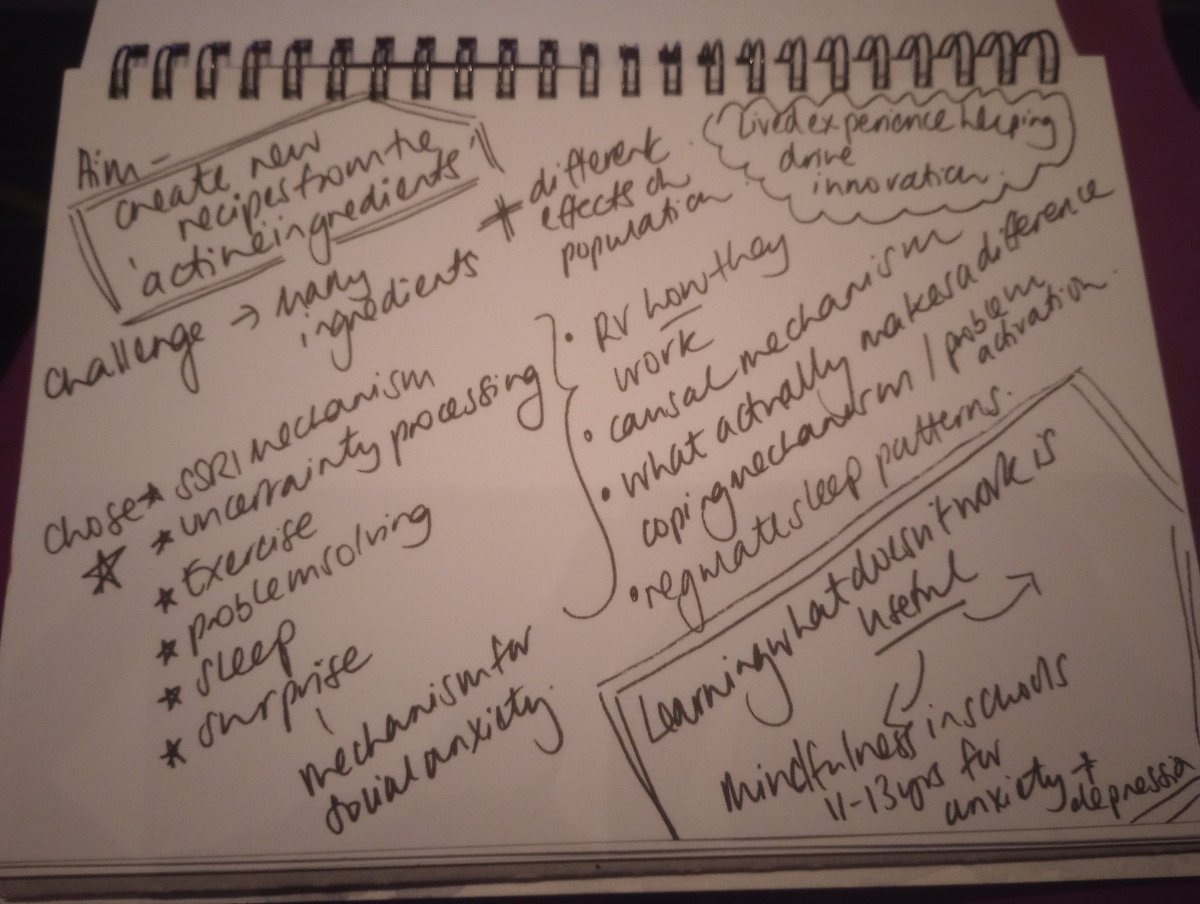 Aim -
create new
recipes from the
'active ingredients'
Challenge → Many
ingredients
+ different
effects on
population
Lived experience helping
drive
innovation.
chose
* SSRI mechanism
* uncertainty processing
* Exercise
* problem solving
* sleep
* surprise
mechanism for
social anxiety.
• RV how they
work
• causal mechanism
• what actually makes a difference
coping mechanism / problem
activation
• regulate sleep patterns.
Learning what doesn't work is
useful
Mindfulness in schools
11-13yrs for
anxiety +
depression